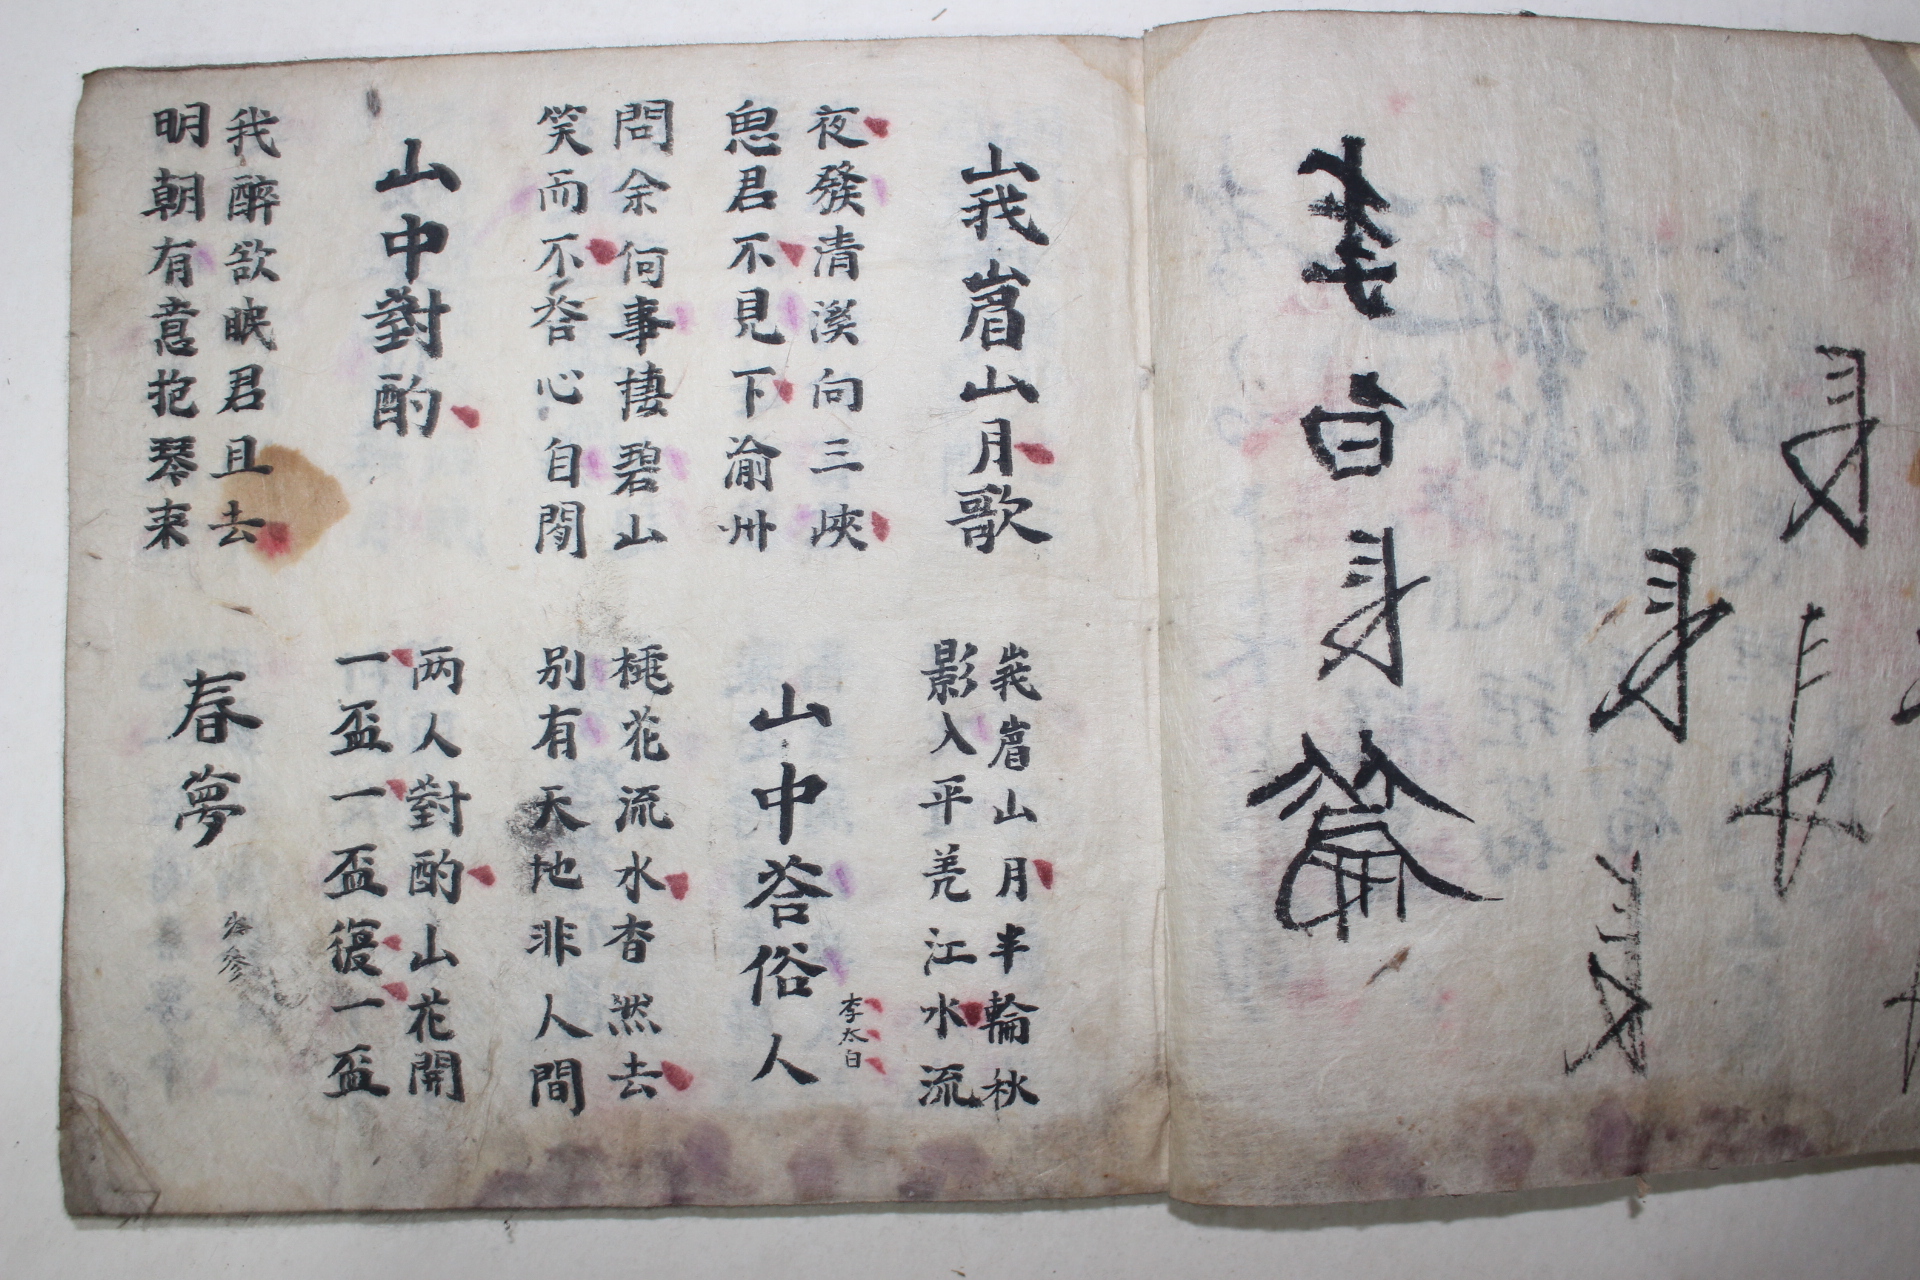 李白身篇
峩嵋山月歌
峩嵋山月半輪秋
影入平羌江水流
夜發清溪向三峽
思君不見下渝州
山中荅俗人
李太白
問余何事捿碧山
笑而不荅心自閒
桃花流水杳然去
別有天地非人間
山中對酌
两人對酌山花開
一盃一盃復一盃
我醉欲眠君且去
明朝有意抱琴来
春夢
岑参